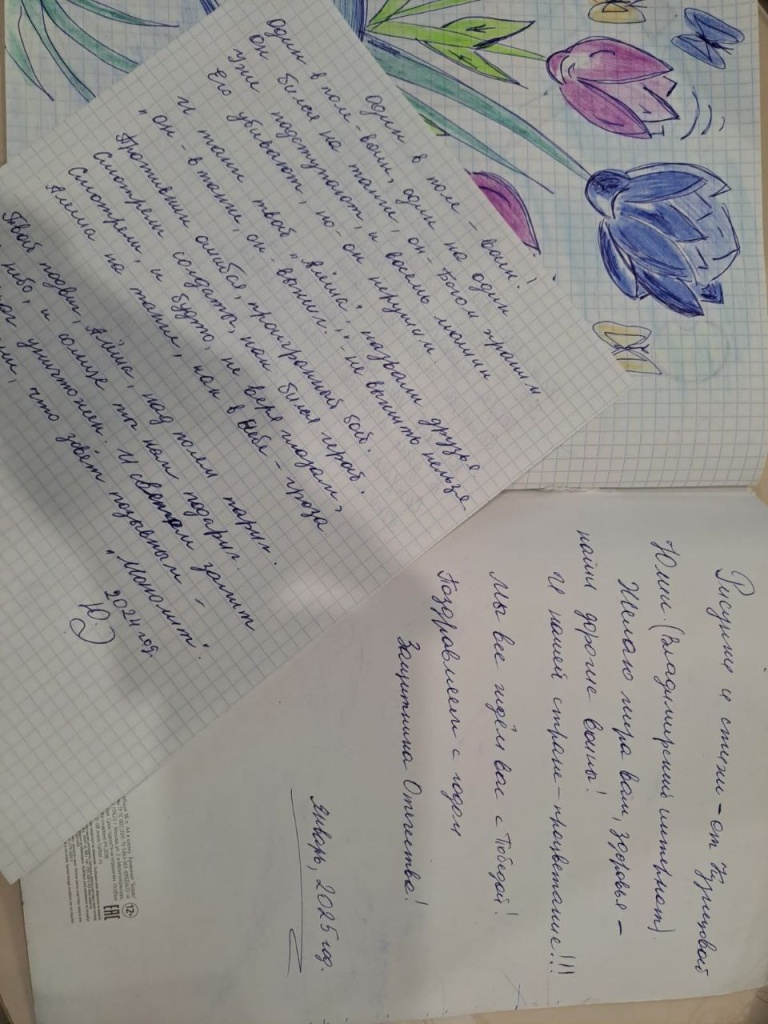 Один в поле – воин!
Один в поле – воин, один на один
он бился на танке, он – Богом храним
уже подступают, и восемь машин
Его убивают, но – он нерушим.
И танк твой „Алёша" назвали друзья
„он – в танке, он – воин!.. не выжить нельзя
Противник ошибся, проигранный бой.
Смотрели солдаты, как бился герой.
Смотрели, и будто, не веря глазам,
Алёша на танке, как в Небе – гроза
Твой подвиг, Алёша, над полем парит.
небо, и солнце ты нам подарил.
уничтожен. И светом залит
что зовёт позывным –
„Монолит".
2024 год.
Рисунки и стихи – от Кузнецовой
Юлии. (Владимирский интернат).
Желаю мира вам, здоровья –
наши дорогие воины!
И нашей стране – процветание!!!
Мы все ждём вас с Победой!
Поздравляем с годом
Защитника Отечества!
Январь, 2025 год.
12+
EAC